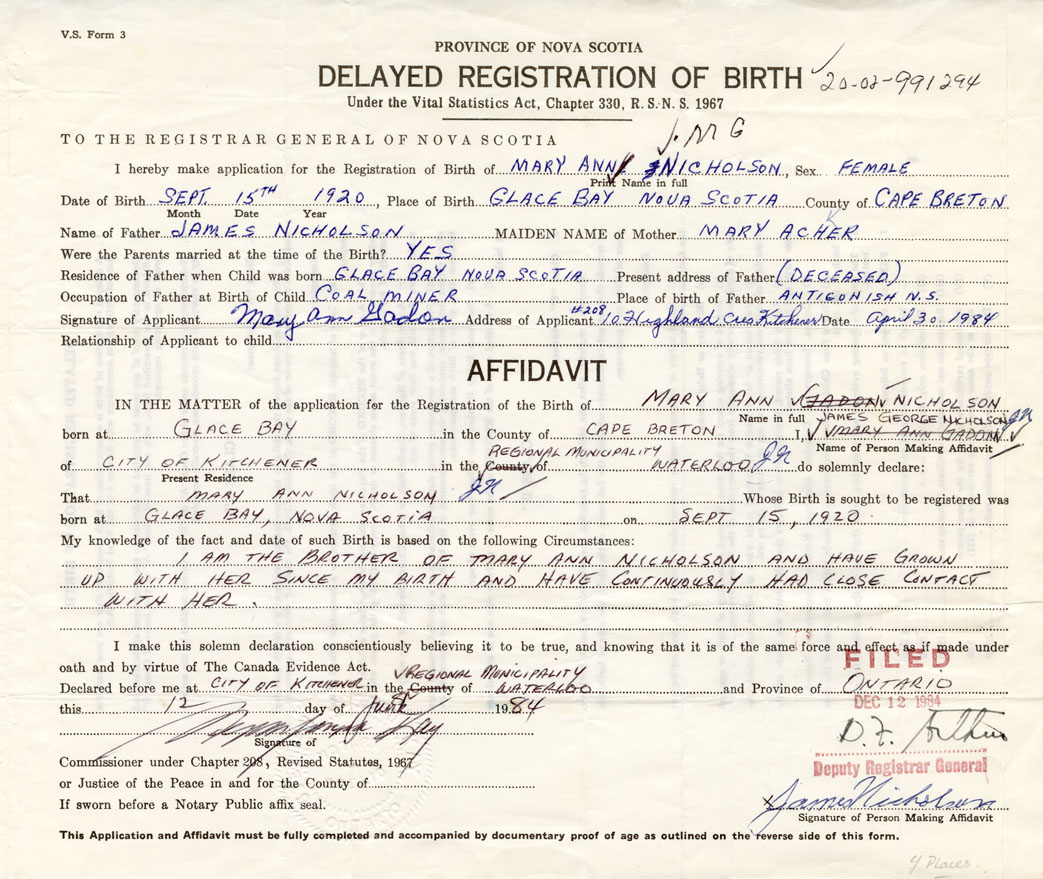 V.S. Form 3
PROVINCE OF NOVA SCOTIA
DELAYED REGISTRATION OF BIRTH 20-02-991294
Under the Vital Statistics Act, Chapter 330, R.S.N.S. 1967
J. M G
TO THE REGISTRAR GENERAL OF NOVA SCOTIA
I hereby make application for the Registration of Birth of MARY ANN NICHOLSON, Sex FEMALE
Print Name in full
Date of Birth SEPT. 15TH 1920, Place of Birth GLACE BAY NOVA SCOTIA County of CAPE BRETON
Month Date Year
Name of Father JAMES NICHOLSON MAIDEN NAME of Mother MARY ACHER
Were the Parents married at the time of the Birth? YES
Residence of Father when Child was born GLACE BAY NOVA SCOTIA Present address of Father (DECEASED)
Occupation of Father at Birth of Child COAL MINER Place of birth of Father ANTIGONISH N.S.
Signature of Applicant Mary Ann Gadon Address of Applicant #208 10 Highland Cres Kitchener Date April 30 1984
Relationship of Applicant to child
AFFIDAVIT
IN THE MATTER of the application for the Registration of the Birth of MARY ANN GADON NICHOLSON
Name in full JAMES GEORGE NICHOLSON JN
born at GLACE BAY in the County of CAPE BRETON I, MARY ANN GADON
REGIONAL MUNICIPALITY Name of Person Making Affidavit
of CITY OF KITCHENER in the County of WATERLOO JN do solemnly declare:
Present Residence
That MARY ANN NICHOLSON JN Whose Birth is sought to be registered was
born at GLACE BAY, NOVA SCOTIA on SEPT 15, 1920
My knowledge of the fact and date of such Birth is based on the following Circumstances:
I AM THE BROTHER OF MARY ANN NICHOLSON AND HAVE GROWN
UP WITH HER SINCE MY BIRTH AND HAVE CONTINUOUSLY HAD CLOSE CONTACT
WITH HER.
I make this solemn declaration conscientiously believing it to be true, and knowing that it is of the same force and effect as if made under
oath and by virtue of The Canada Evidence Act.
FILED
REGIONAL MUNICIPALITY
Declared before me at CITY OF KITCHENER in the County of WATERLOO and Province of ONTARIO
DEC 12 1984
this 12 day of 1984
D.F.
Signature of
Commissioner under Chapter 208, Revised Statutes, 1967
Deputy Registrar General
or Justice of the Peace in and for the County of
If sworn before a Notary Public affix seal.
James Nicholson
Signature of Person Making Affidavit
This Application and Affidavit must be fully completed and accompanied by documentary proof of age as outlined on the reverse side of this form.
4 Places.